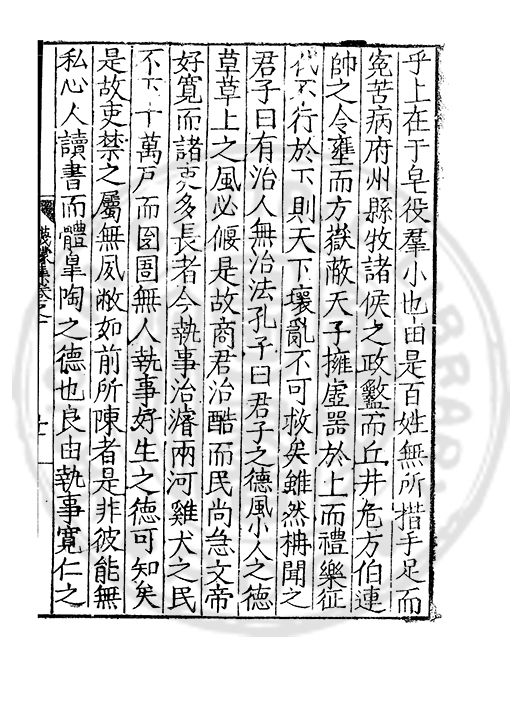 乎上在于皂役羣小也由是百姓無所措手足而
冤苦病府州縣牧諸侯之政盭而丘井危方伯連
帥之令壅而方嶽敝天子擁虛器於上而禮樂征
代不行於下則天下壞亂不可救矣雖然楠聞之
君子曰有治人無治法孔子曰君子之德風小人之德
草草上之風必偃是故商君治酷而民尚急文帝
好寬而諸吏多長者今執事治濬兩河雞犬之民
不下十萬戶而囹圄無人執事好生之德可知矣
是故吏禁之屬無夙敝如前所陳者是非彼能無
私心人讀書而體臯陶之德也良由執事寬仁之
集卷之